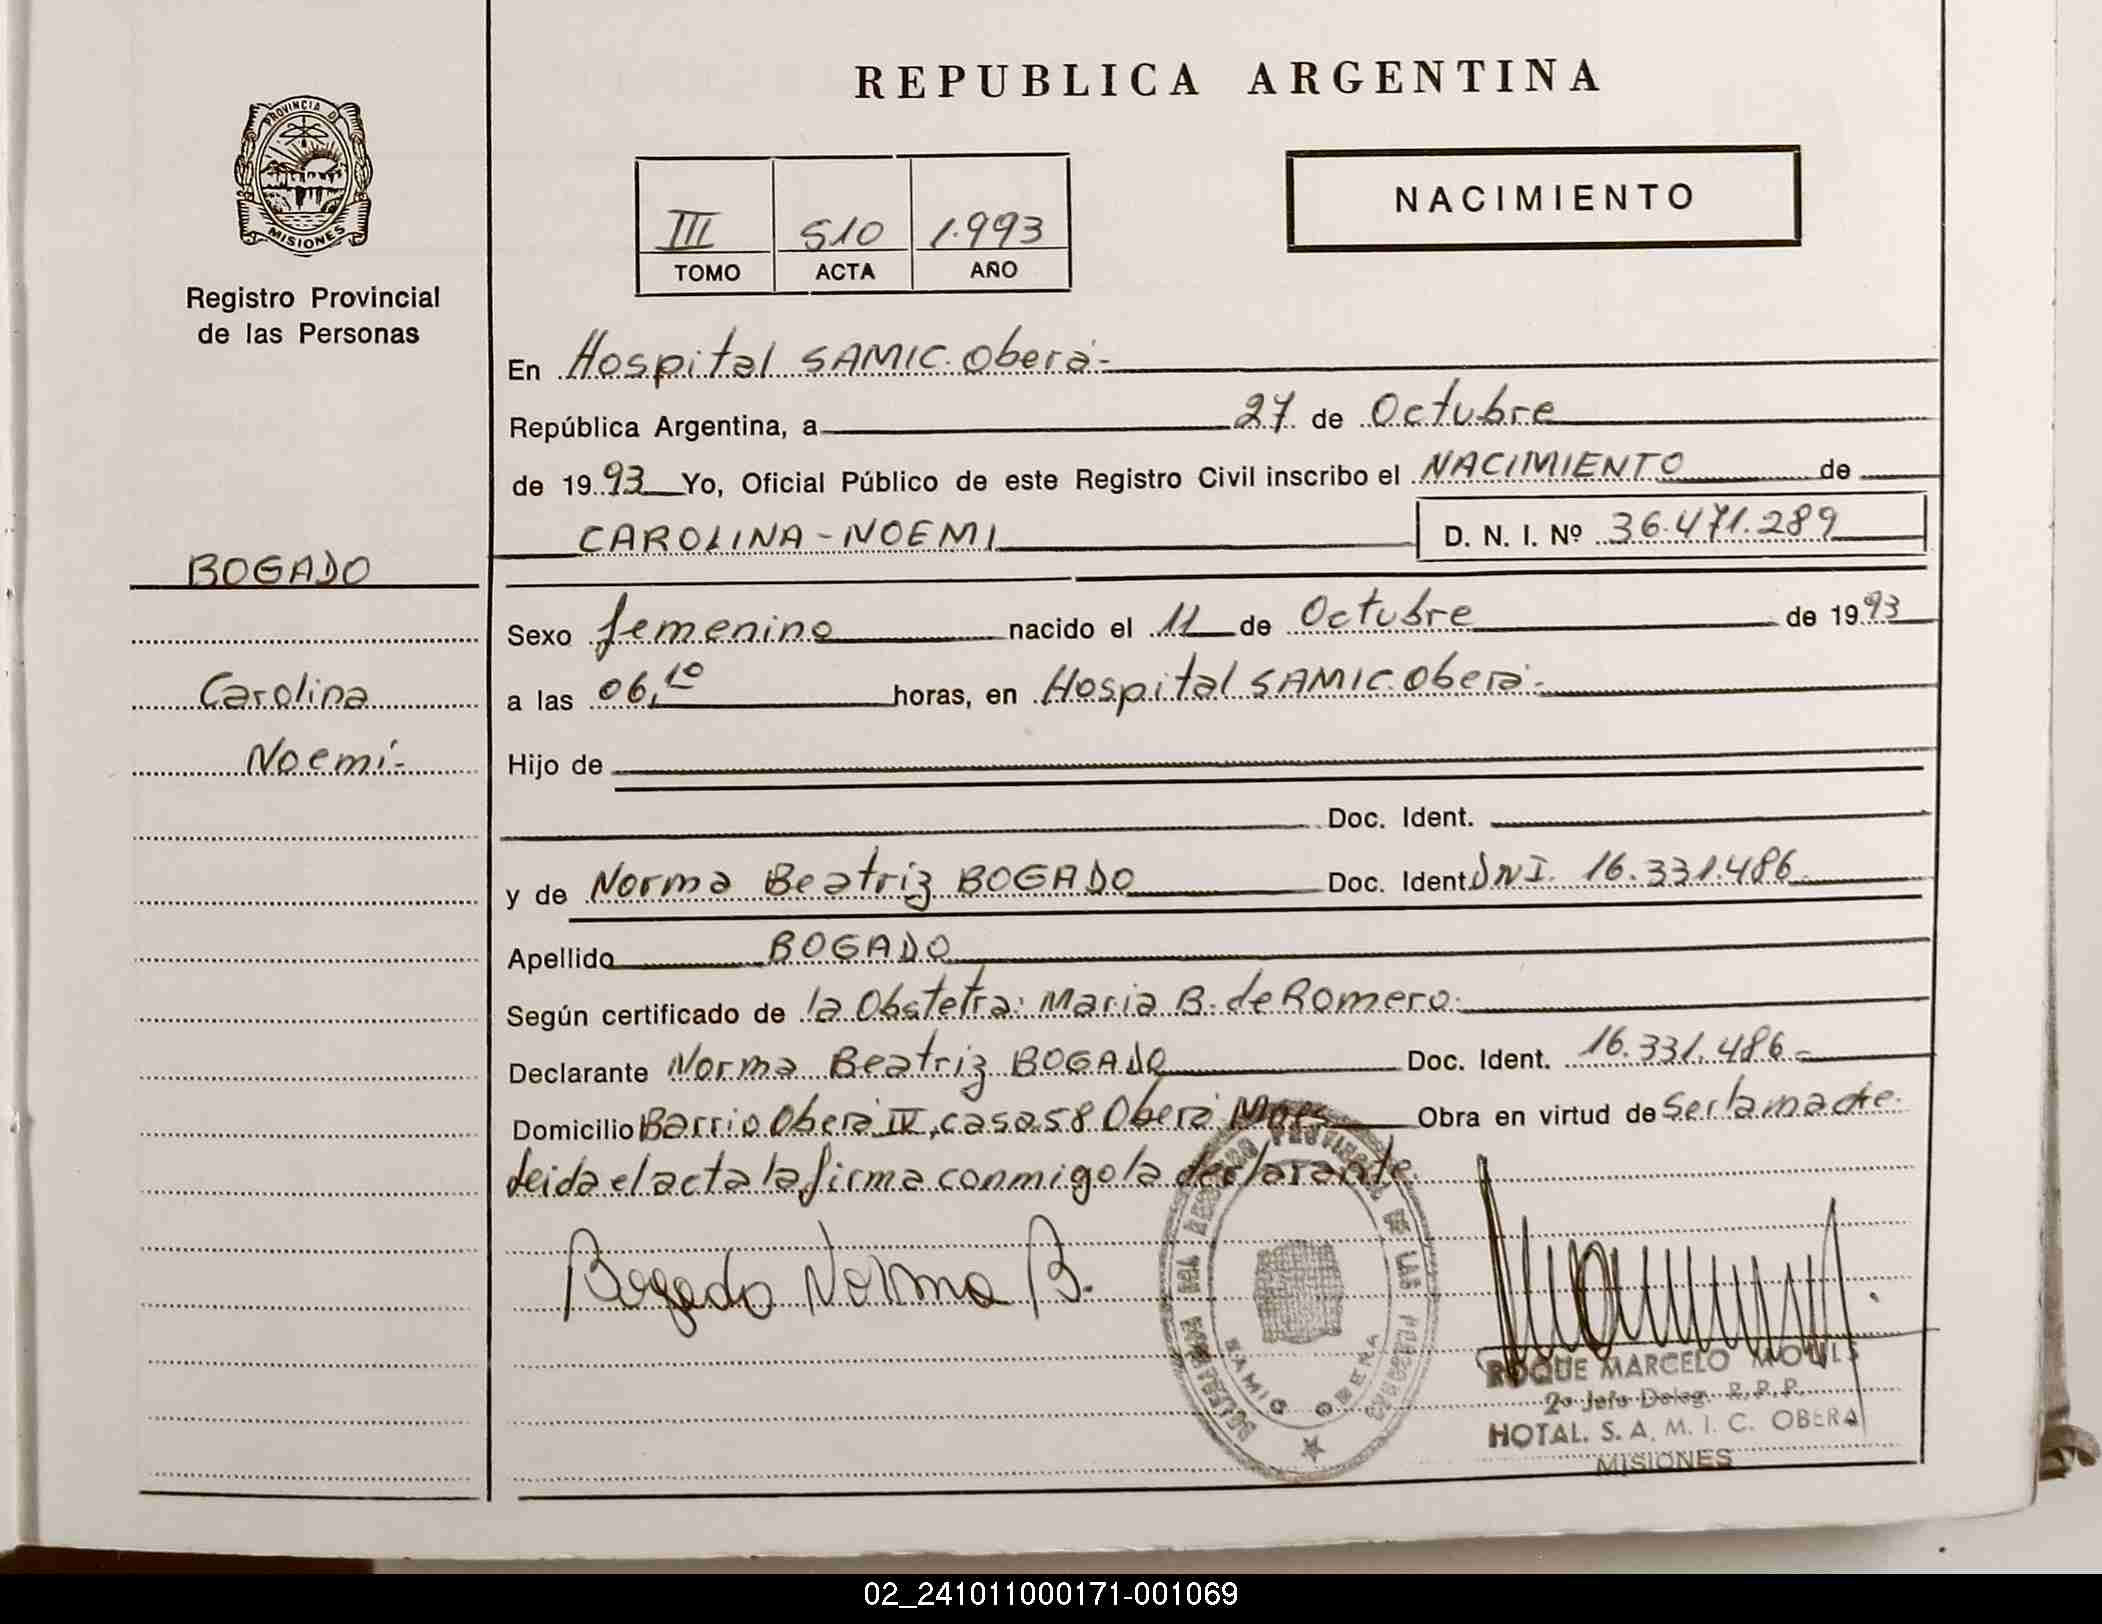 REPUBLICA ARGENTINA
PROVINCIA D
MISIONES
Registro Provincial
de las Personas
NACIMIENTO
III 510 1.993
TOMO ACTA AÑO
En Hospital SAMIC. Oberá-
República Argentina, a 27 de Octubre
de 1993 Yo, Oficial Público de este Registro Civil inscribo el NACIMIENTO de
CAROLINA-NOEMI D. N. I. Nº 36.471.289
BOGADO
Carolina
Noemí-
Sexo femenino nacido el 11 de Octubre de 1993
a las 06,10 horas, en Hospital SAMIC. Oberá-
Hijo de
Doc. Ident.
y de Norma Beatriz BOGADO Doc. Ident. DNI. 16.331.486
Apellido BOGADO
Según certificado de la Obstetra: Maria B. de Romero.
Declarante Norma Beatriz BOGADO Doc. Ident. 16.331.486-
Domicilio Barrio Oberá IV, casa 58 Oberá Mnes Obra en virtud de ser la madre.
Leida el acta la firma conmigo la declarante.
Bogado Norma B.
PROVINCIAL DE LAS PERSONAS
SAMIC OBERA
ROQUE MARCELO
2º Jefe Deleg. R. P. P.
HOTAL. S. A. M. I. C. OBERA
MISIONES
02_241011000171-001069